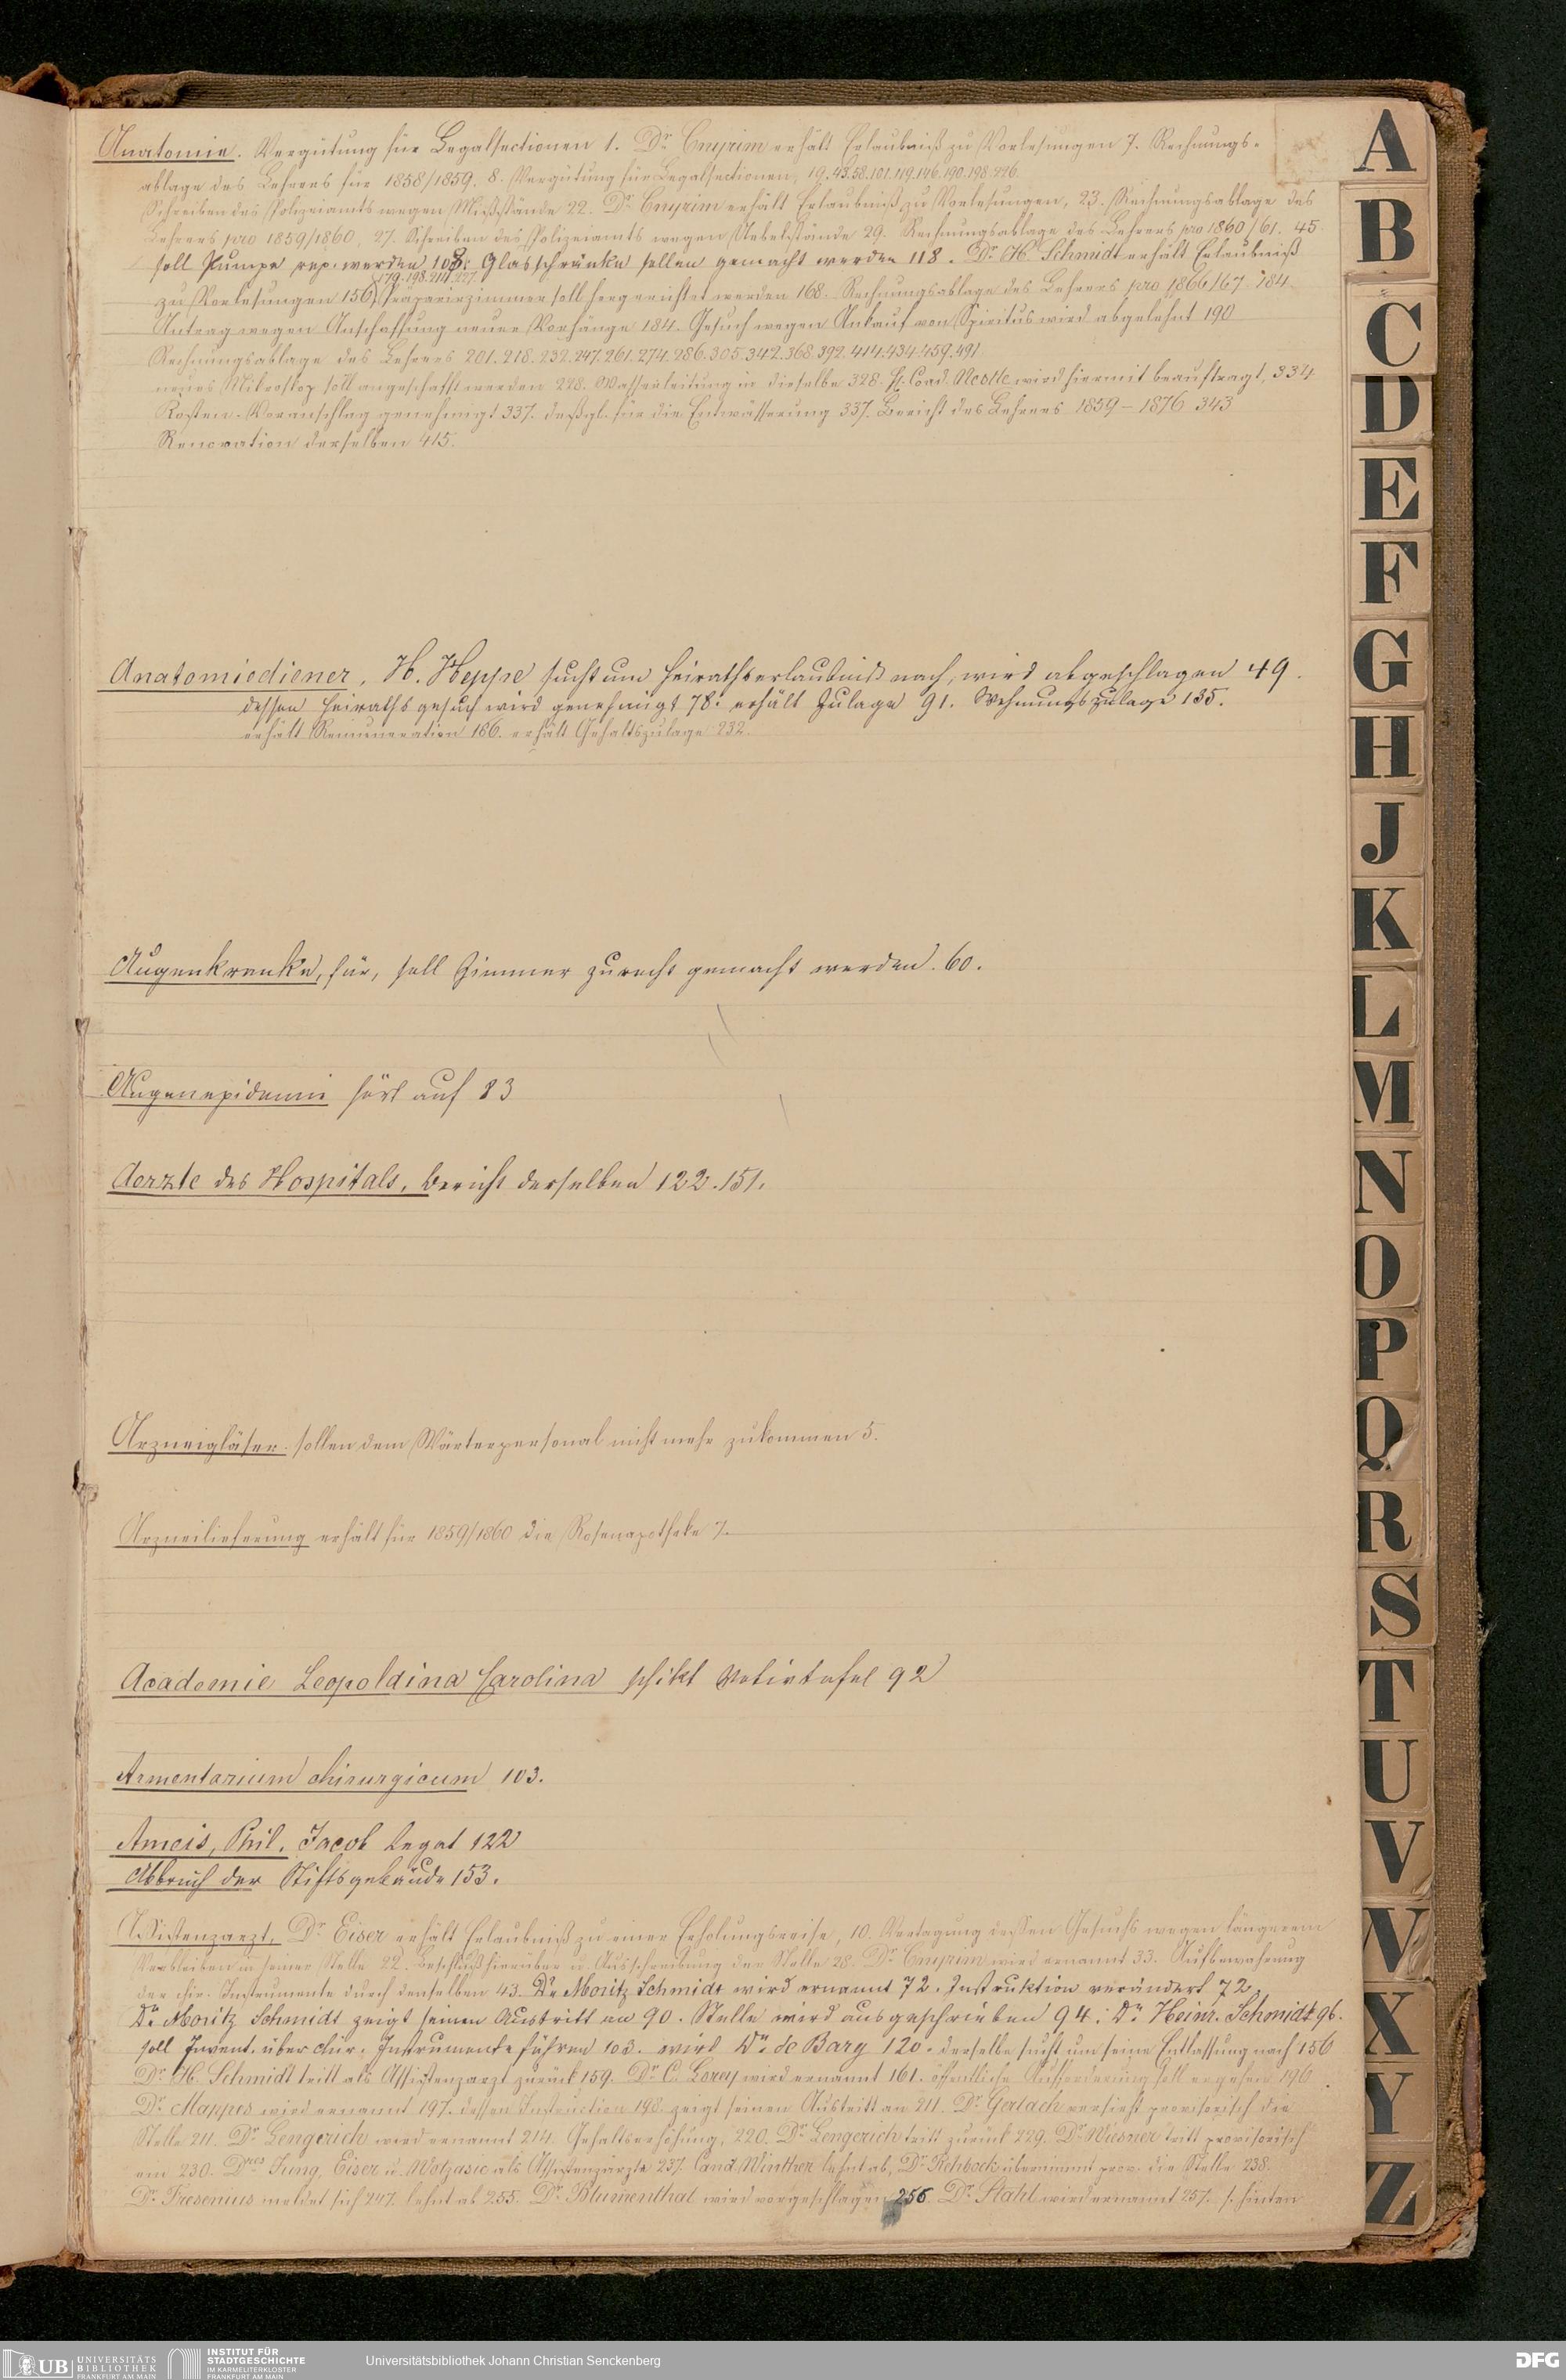 Anatomie. Vergütung für Legalsectionen 1. Dr Cnyrim erhält Erlaubniß zu Vorlesungen 7. Rechnungs-
ablage des Lehrers für 1858/1859. 8. Vergütung für Legalsectionen, 19.43.58.101.119.146.190.198.226.
Schreiben des Polizeiamts wegen Mißstände 22. Dr Cnyrim erhält Erlaubniß zu Vorlesungen, 23. Rechnungsablage des
Lehrers pro 1859/1860, 27. Schreiben des Polizeiamts wegen Uebelstände 29. Rechnungsablage des Lehrers pro 1860/61. 45.
soll Pumpe rep. werden 108. Glasschränke sollen gemacht werden 118. Dr H. Schmidt erhält Erlaubniß
179.198.214.227.
zu Vorlesungen 156, Präparirzimmer soll hergerichtet werden 168. Rechnungsablage des Lehrers pro 1866/67 184.
Antrag wegen Anschaffung neuer Vorhänge 184. Gesuch wegen Ankauf von Spiritus wird abgelehnt 190
Rechnungsablage des Lehrers 201.218.232.247.261.274.286.305.342.368.392.414.434.459.491
neues Mikroskop soll angeschafft werden 228. Wasserleitung in dieselbe 328. H. Cond. Nestle wird hiermit beauftragt, 334
Kosten-Voranschlag genehmigt 337. deßgl. für die Entwässerung 337. Bericht des Lehrers 1859 – 1876 343
Renovation derselben 415.
Anatomiediener, H. Heppe sucht um Heirathserlaubniß nach, wird abgeschlagen 49.
dessen Heirathsgesuch wird genehmigt 78. erhält Zulage 91. Wohnungszulage 135.
erhält Remuneration 166. erhält Gehaltszulage 232.
Augenkranke, für, soll Zimmer zurecht gemacht werden. 60.
Augenepidemie hört auf 83
Aerzte des Hospitals, Bericht derselben 122.151.
Arzneigläser sollen dem Wärterpersonal nicht mehr zukommen 5.
Arzneilieferung erhält für 1859/1860 die Rosenapotheke 7.
Academie Leopoldina Carolina schikt Votivtafel 92
Armentarium chirurgicum 103.
Ameis, Phil. Jacob Legat 122
Abbruch der Stiftsgebäude 153.
Assistenzarzt, Dr Eiser erhält Erlaubniß zu einer Erholungsreise, 10. Vertagung dessen Gesuchs wegen längerem
Verbleiben in seiner Stelle 22. Beschluß hierüber u. Ausschreibung der Stelle 28. Dr Cnyrim wird ernannt 33. Aufbewahrung
der chir. Instrumente durch denselben 43. Dr Moritz Schmidt wird ernannt 72. Instruktion verändert 72
Dr Moritz Schmidt zeigt seinen Austritt an 90. Stelle wird ausgeschrieben 94. Dr Heinr. Schmidt 96.
soll Invent. über chir. Instrumente führen 103. wird Dr de Bary 120. derselbe sucht um seine Entlassung nach 156
Dr H. Schmidt tritt als Assistenzarzt zurück 159. Dr C. Lorey wird ernannt 161. öffentliche Aufforderung soll ergehen 196
Dr Mappes wird ernannt 197. dessen Instruction 198. zeigt seinen Austritt an 211. Dr Gerlach versieht provisorisch die
Stelle 211. Dr Lengerich wird ernannt 214. Gehaltserhöhung, 220. Dr Lengerich tritt zurück 229. Dr Wiesner tritt provisorisch
ein 230. Dres Jung, Eiser u. als Assistenzärzte 237. Cand. Winther lehnt ab, Dr Rehbock übernimmt prov. die Stelle 238.
Dr Fresenius meldet sich 247. lehnt ab 255. Dr Blumenthal wird vorgeschlagen 256. Dr Stahl wird ernannt 257. s. hinten
A
B
C
D
E
F
G
H
J
K
L
M
N
O
P
Q
R
S
T
U
V
W
X
Y
Z
UB UNIVERSITÄTS
BIBLIOTHEK
FRANKFURT AM MAIN
INSTITUT FÜR
STADTGESCHICHTE
IM KARMELITERKLOSTER
FRANKFURT AM MAIN
Universitätsbibliothek Johann Christian Senckenberg
DFG